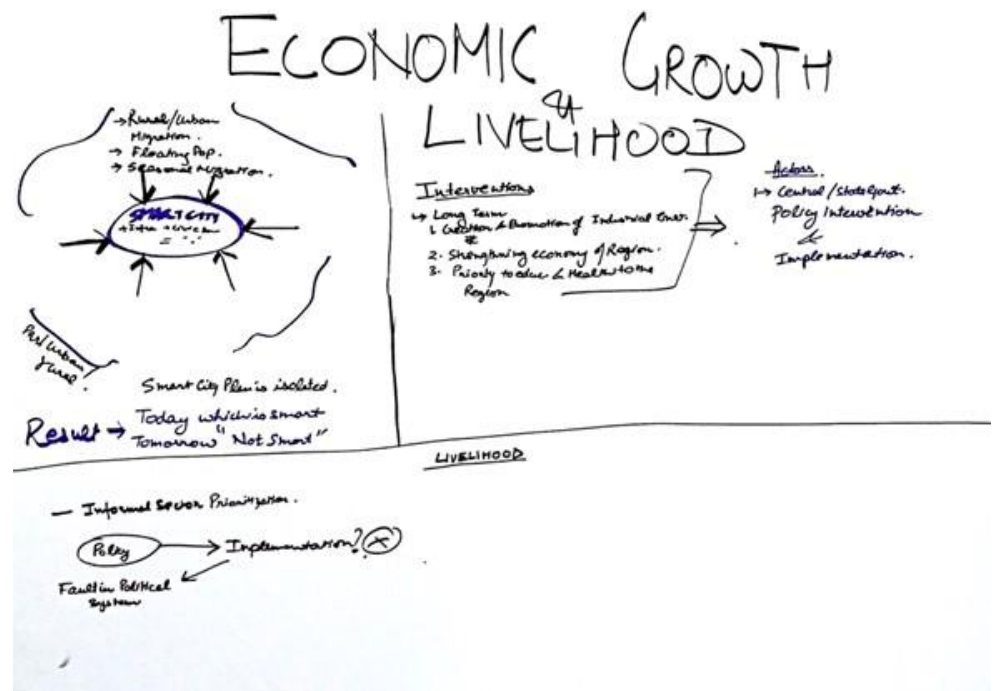 ECONOMIC GROWTH
&
LIVELIHOOD
→ Rural/Urban
Migration.
→ Floating Pop.
→ Seasonal Migration.
SMART CITY
+ Infra + Civic
Peri/Urban
& Rural.
Smart City Plan is isolated.
Result → Today which is smart
Tomorrow "Not Smart"
Interventions
↳ Long Term
1. Creation & Promotion of Industrial
2. Strengthning economy of Region.
3. Priority to educ & Health to the
Region
Actors
↳ Central/State Govt.
Policy Intervention
&
Implementation.
LIVELIHOOD
— Informal Sector Prioritization.
Policy → Implementation?
Fault in Political
System